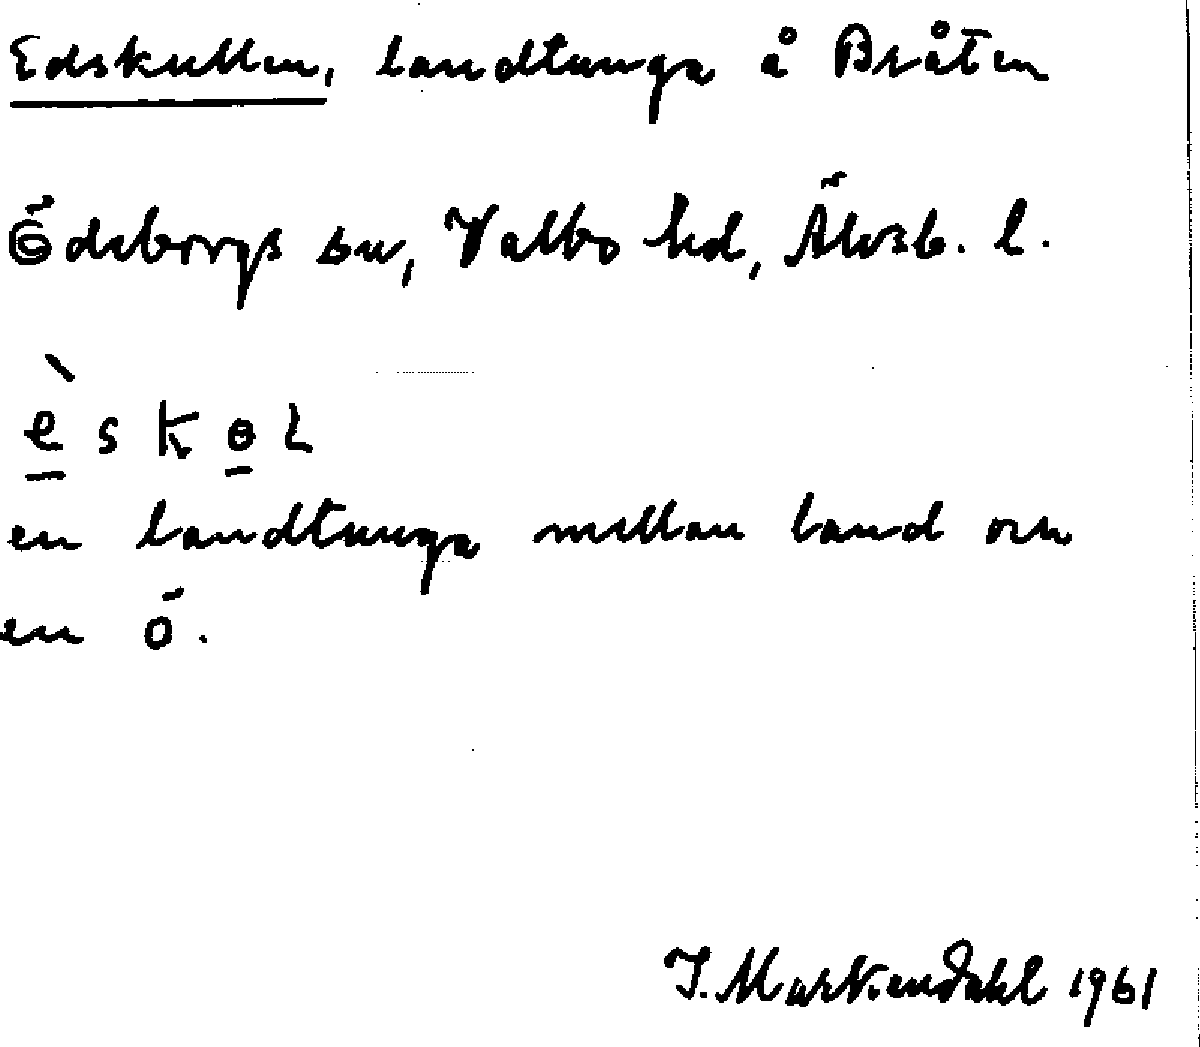 Edskullen, landtunga å Bråten
Ödeborgs sn, Valbo hd, Älvsb. l.
èskoL
en landtunga mellan land och
en ö.
J. Markendahl 1961